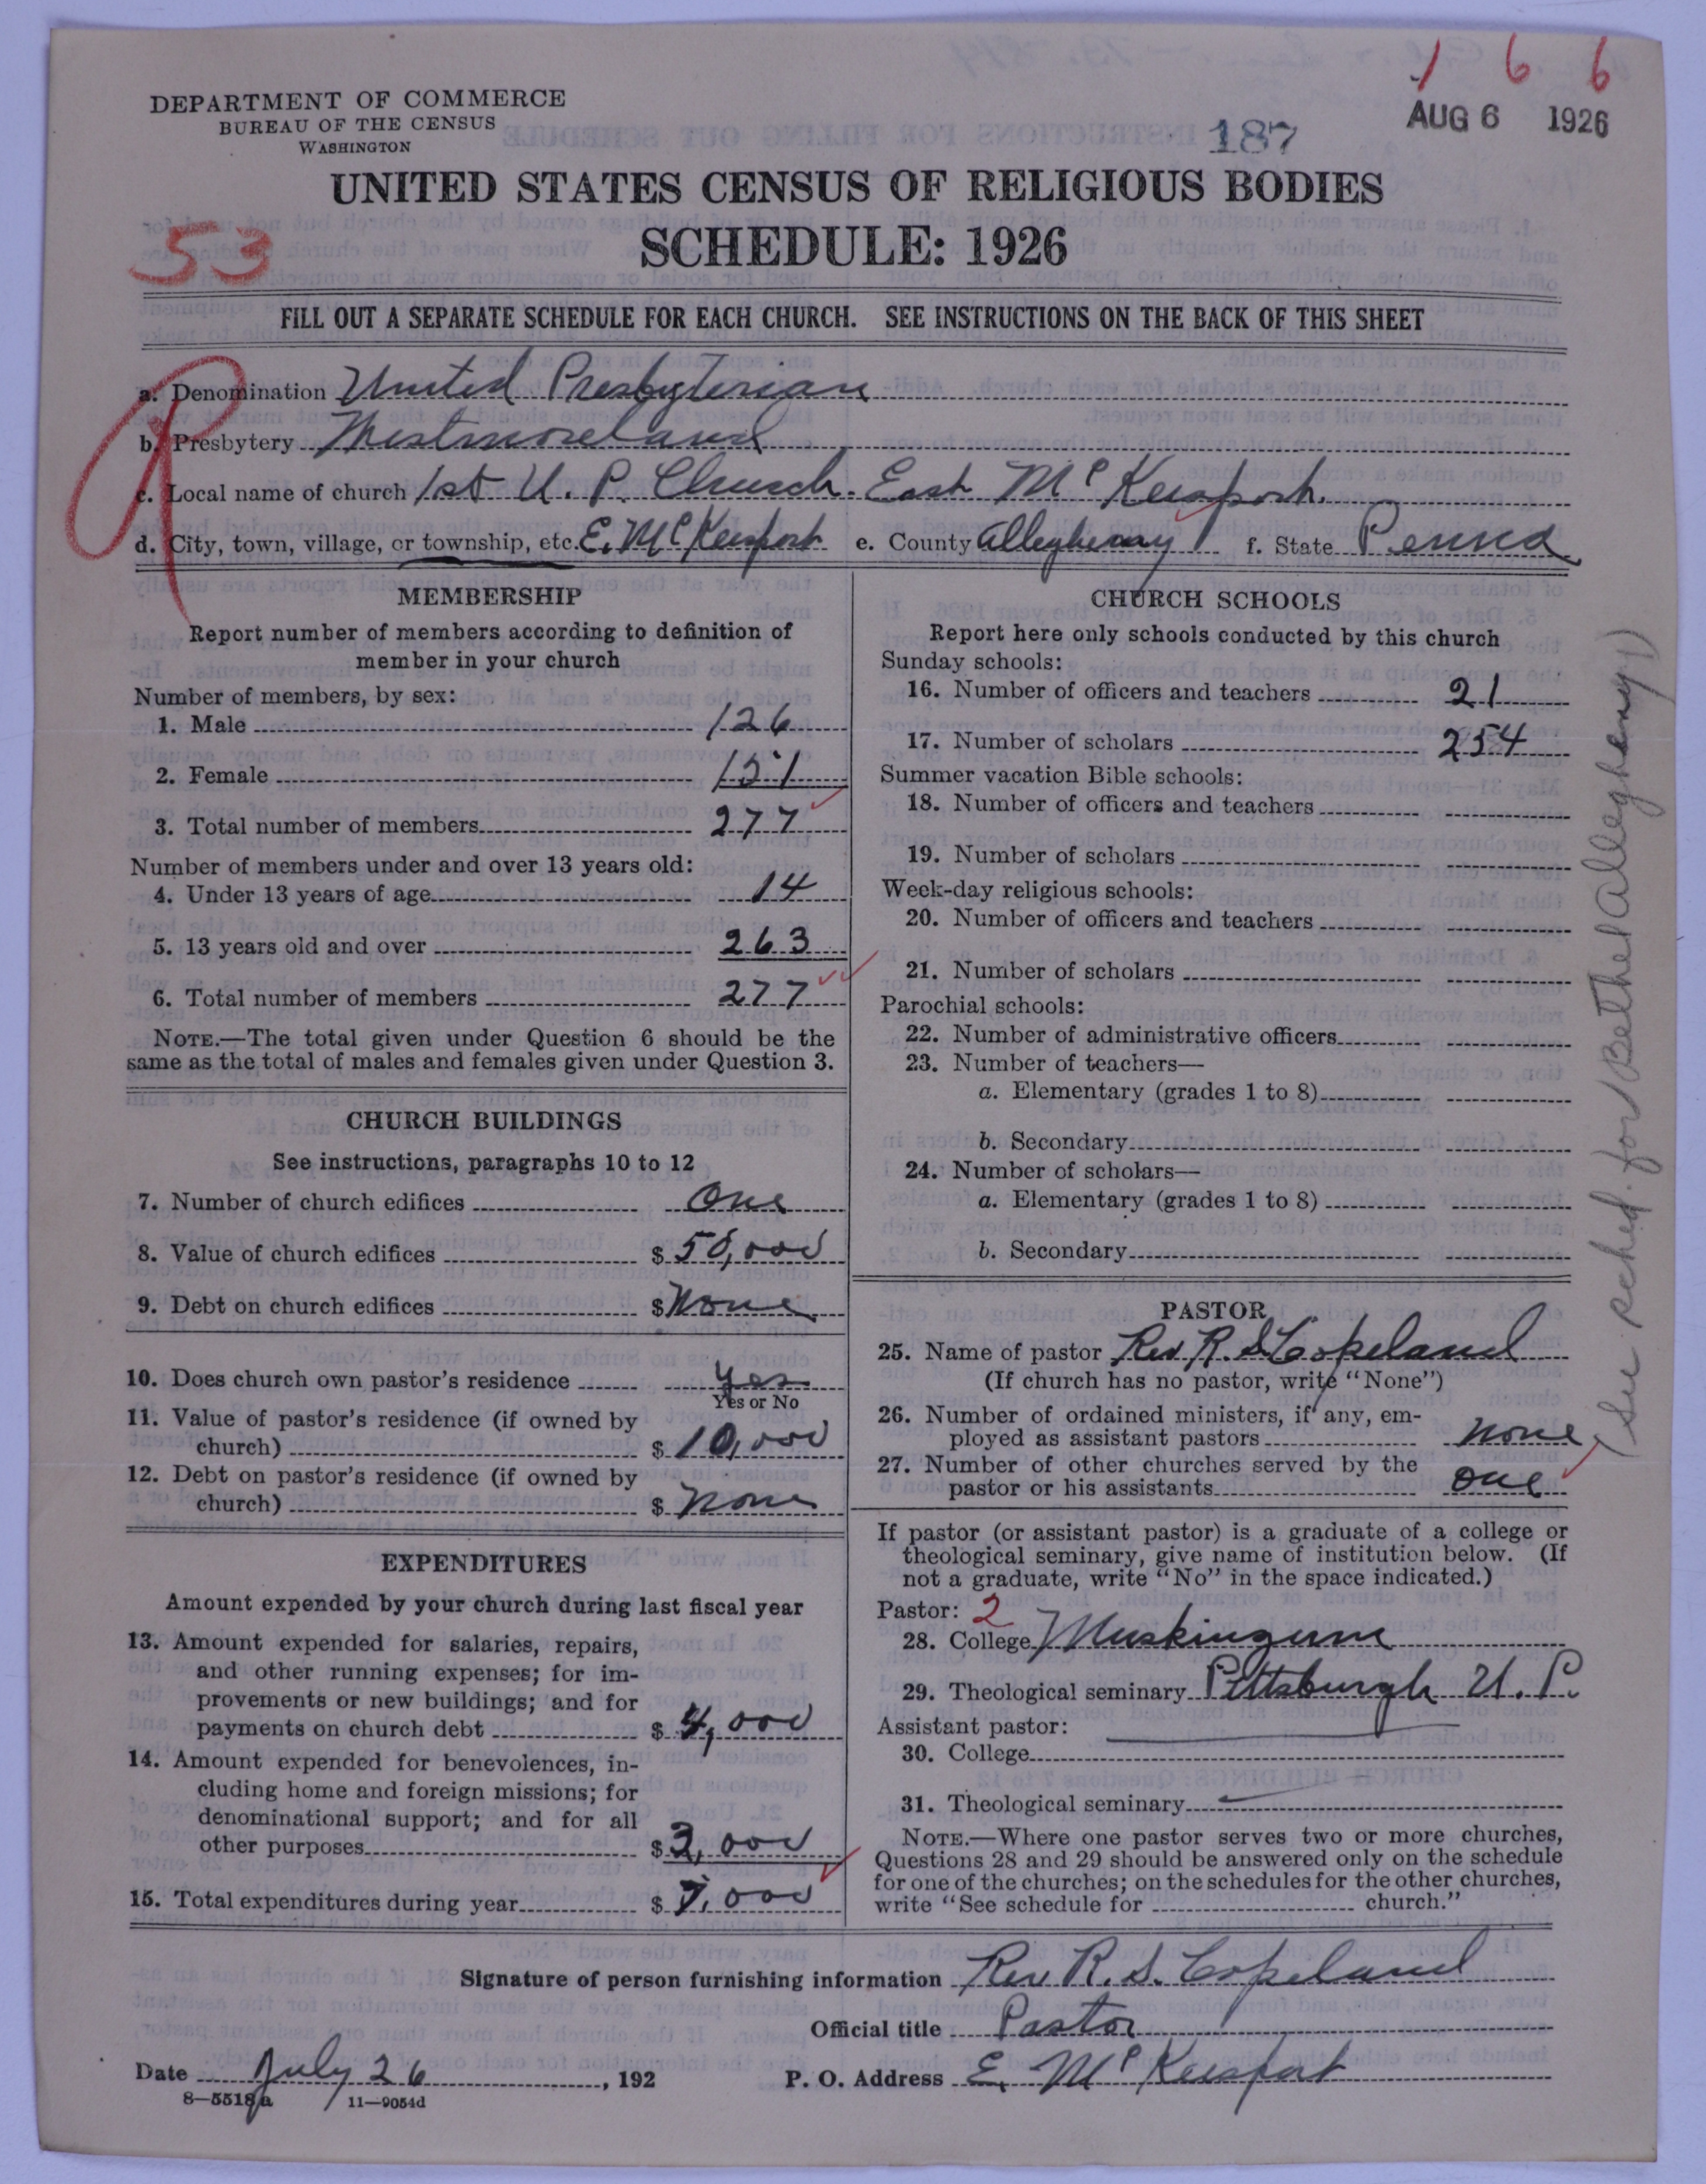 1 6 6
DEPARTMENT OF COMMERCE
BUREAU OF THE CENSUS
WASHINGTON
187
AUG 6 1926
UNITED STATES CENSUS OF RELIGIOUS BODIES
SCHEDULE: 1926
53
FILL OUT A SEPARATE SCHEDULE FOR EACH CHURCH. SEE INSTRUCTIONS ON THE BACK OF THIS SHEET
a. Denomination United Presbyterian
b. Presbytery Westmoreland
c. Local name of church 1st U. P. Church. East McKeesport.
d. City, town, village, or township, etc. E. McKeesport e. County Allegheny f. State Penna
MEMBERSHIP
Report number of members according to definition of
member in your church
Number of members, by sex:
1. Male 126
2. Female 151
3. Total number of members 277
Number of members under and over 13 years old:
4. Under 13 years of age 14
5. 13 years old and over 263
6. Total number of members 277
NOTE.—The total given under Question 6 should be the
same as the total of males and females given under Question 3.
CHURCH BUILDINGS
See instructions, paragraphs 10 to 12
7. Number of church edifices One
8. Value of church edifices $ 50,000
9. Debt on church edifices $ None
10. Does church own pastor's residence yes
Yes or No
11. Value of pastor's residence (if owned by
church) $ 10,000
12. Debt on pastor's residence (if owned by
church) $ None
EXPENDITURES
Amount expended by your church during last fiscal year
13. Amount expended for salaries, repairs,
and other running expenses; for im-
provements or new buildings; and for
payments on church debt $ 4,000
14. Amount expended for benevolences, in-
cluding home and foreign missions; for
denominational support; and for all
other purposes $ 3,000
15. Total expenditures during year $ 7,000
CHURCH SCHOOLS
Report here only schools conducted by this church
Sunday schools:
16. Number of officers and teachers 21
17. Number of scholars 254
Summer vacation Bible schools:
18. Number of officers and teachers
19. Number of scholars
Week-day religious schools:
20. Number of officers and teachers
21. Number of scholars
Parochial schools:
22. Number of administrative officers
23. Number of teachers—
a. Elementary (grades 1 to 8)
b. Secondary
24. Number of scholars—
a. Elementary (grades 1 to 8)
b. Secondary
PASTOR
25. Name of pastor Rev. R. S. Copeland
(If church has no pastor, write "None")
26. Number of ordained ministers, if any, em-
ployed as assistant pastors None
27. Number of other churches served by the
pastor or his assistants one
If pastor (or assistant pastor) is a graduate of a college or
theological seminary, give name of institution below. (If
not a graduate, write "No" in the space indicated.)
Pastor: 2
28. College Muskingum
29. Theological seminary Pittsburgh U. P.
Assistant pastor:
30. College
31. Theological seminary
NOTE.—Where one pastor serves two or more churches,
Questions 28 and 29 should be answered only on the schedule
for one of the churches; on the schedules for the other churches,
write "See schedule for church."
(See sched. for Bethel Allegheny)
Signature of person furnishing information Rev R. S. Copeland
Official title Pastor
Date July 26, 192 P. O. Address E. McKeesport
8—5518a 11—9054d